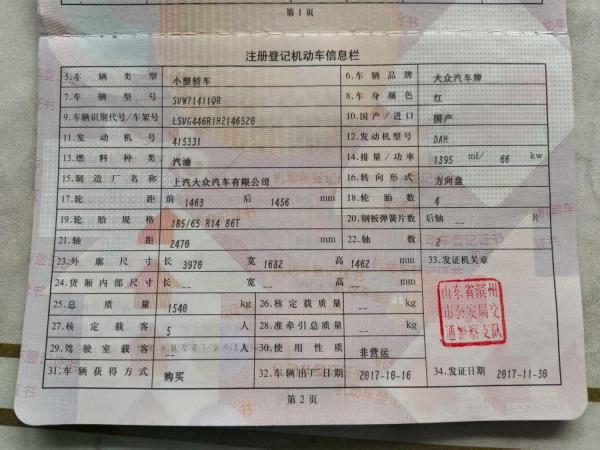 第1页
注册登记机动车信息栏
5.车辆类型 小型轿车 6.车辆品牌 大众汽车牌
7.车辆型号 SVW71411QR 8.车身颜色 红
9.车辆识别代号/车架号 LSVG446R1H2146520 10.国产/进口 国产
11.发动机号 415331 12.发动机型号 DAH
13.燃料种类 汽油 14.排量/功率 1395 ml/ 66 kw
15.制造厂名称 上汽大众汽车有限公司 16.转向形式 方向盘
17.轮距 前 1463 后 1456 mm 18.轮胎数 4
19.轮胎规格 185/65 R14 86T 20.钢板弹簧片数 后轴 -- 片
21.轴距 2470 mm 22.轴数 2
23.外廓尺寸 长 3970 宽 1682 高 1462 mm 33.发证机关章
24.货厢内部尺寸 长 -- 宽 -- 高 -- mm
25.总质量 1540 kg 26.核定载质量 -- kg
27.核定载客 5 人 28.准牵引总质量 -- kg
29.驾驶室载客 -- 人 30.使用性质 非营运
31.车辆获得方式 购买 32.车辆出厂日期 2017-10-16 34.发证日期 2017-11-30
山东省滨州
市公安局交
通警察支队
第2页